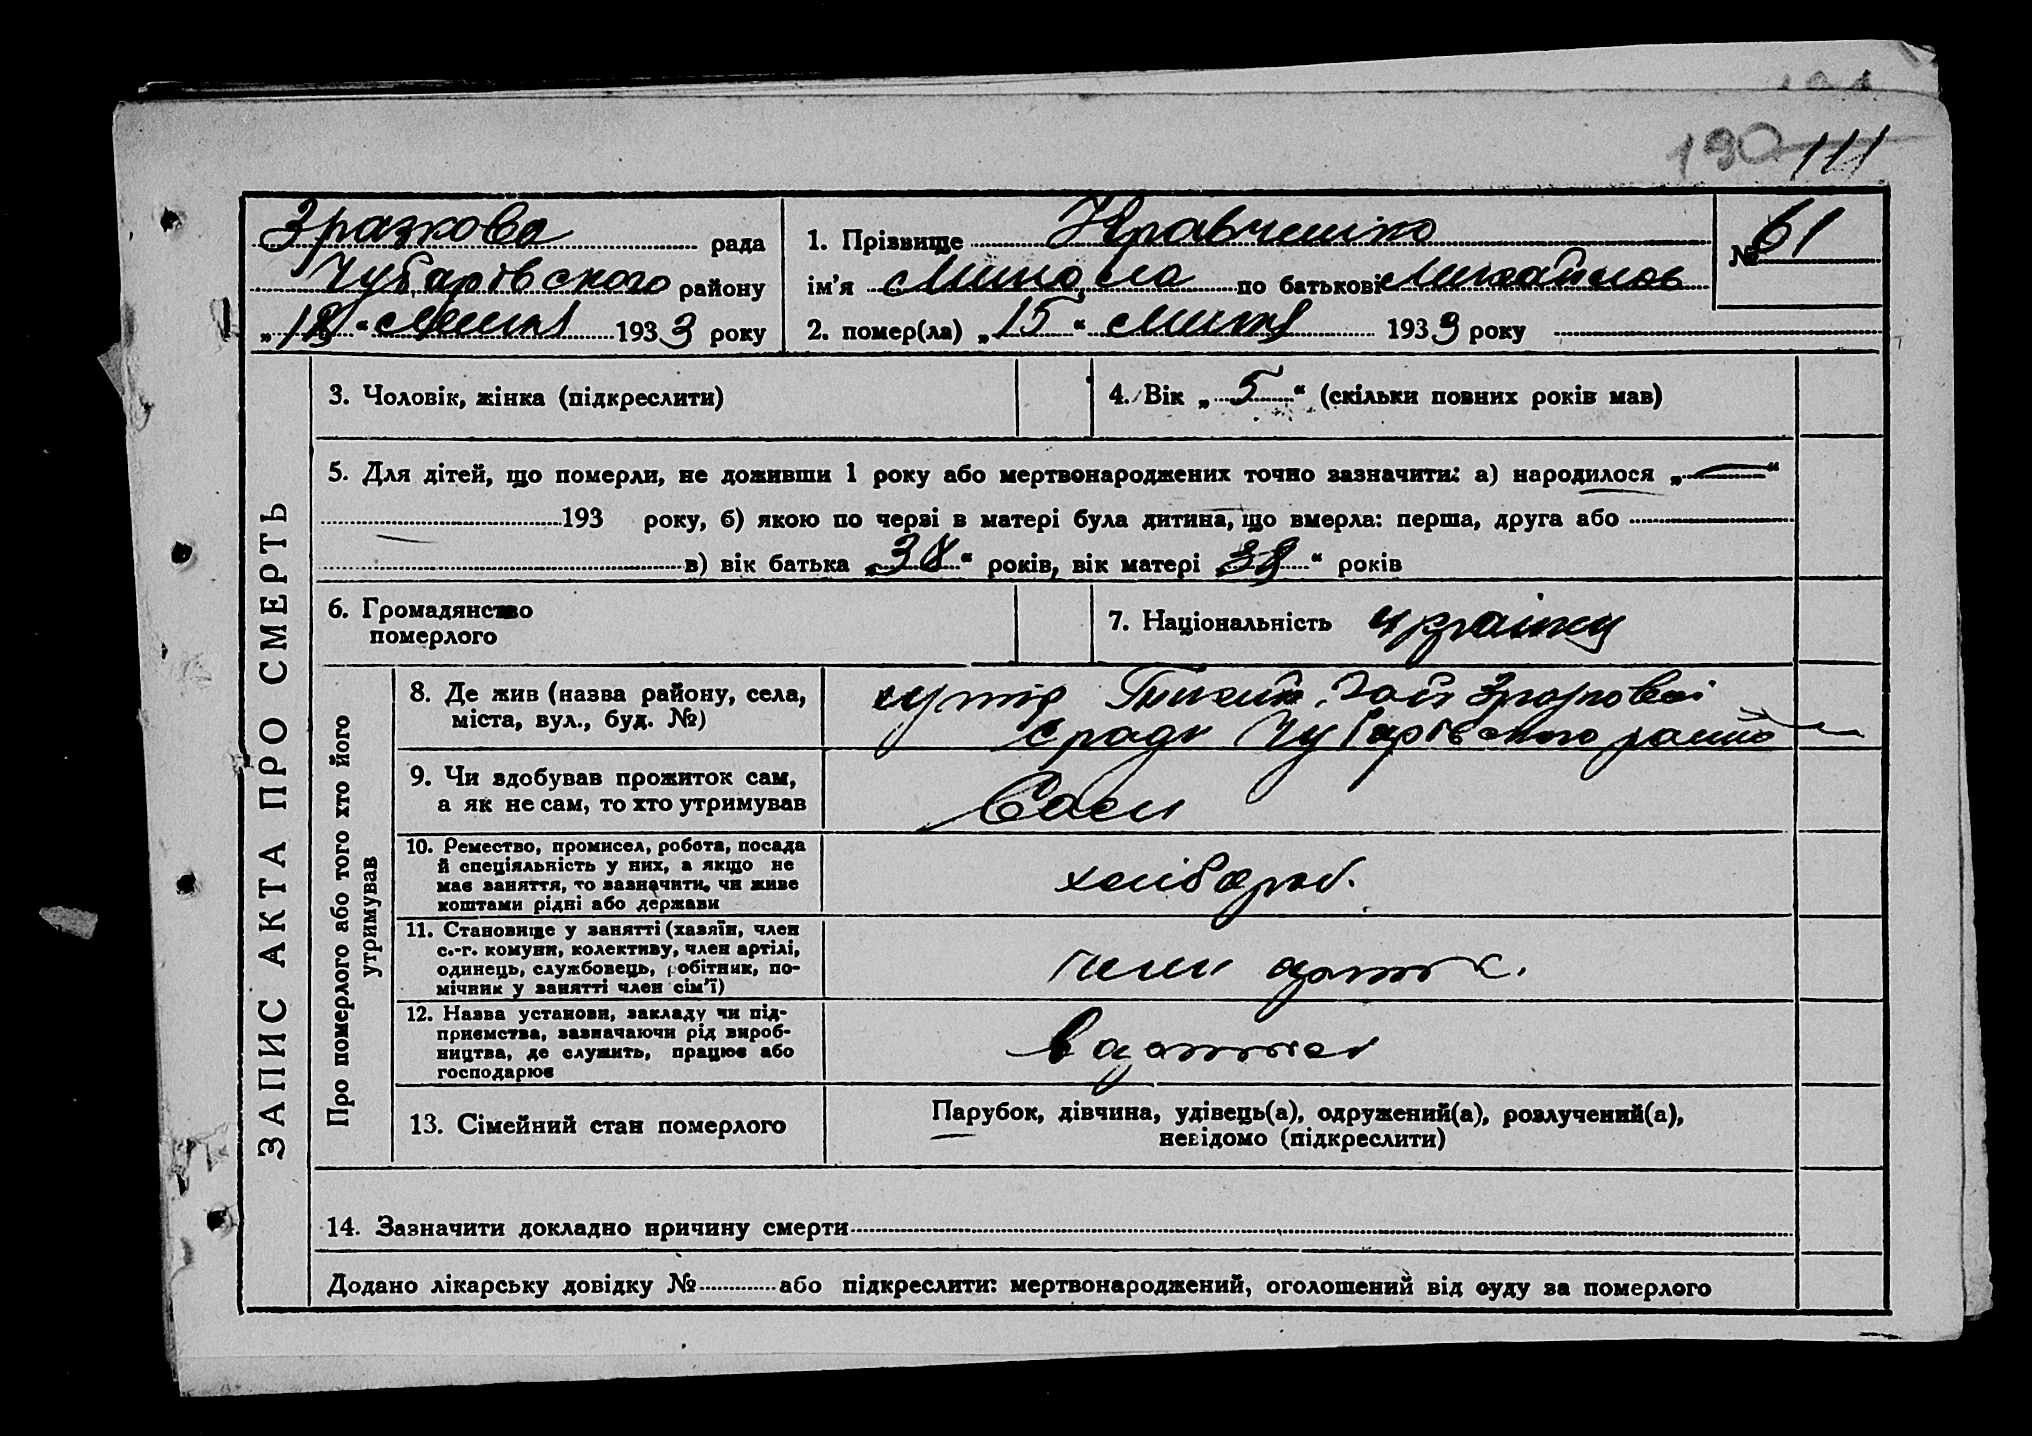 190 111
Зразкова рада
Чубарівського району
„18“ липня 1933 року
1. Прізвище Кравченко
ім’я Микола по батькові Михайлов
2. помер(ла) „15“ 1933 року
№ 61
ЗАПИС АКТА ПРО СМЕРТЬ
3. Чоловік, жінка (підкреслити)
4. Вік „5“ (скільки повних років мав)
5. Для дітей, що померли, не доживши 1 року або мертвонароджених точно зазначити: а) народилося „—“
193 року, б) якою по черзі в матері була дитина, що вмерла: перша, друга або
в) вік батька „38“ років, вік матері „38“ років
6. Громадянство
померлого
7. Національність
Про померлого або того хто його
утримував
8. Де жив (назва району, села,
міста, вул., буд. №)
хутір Гай Зразкової
с ради Чубарівського району
9. Чи вдобував прожиток сам,
а як не сам, то хто утримував
10. Ремество, промисел, робота, посада
й спеціяльність у них, а якщо не
має заняття, то зазначити, чи живе
коштами рідні або держави
хлібороб.
11. Становище у занятті (хазяїн, член
с.-г. комуни, колективу, член артілі,
одинець, службовець, робітник, по-
мічник у занятті член сім’ї)
член артіл.
12. Назва установи, закладу чи під-
приємства, зазначаючи рід вироб-
ництва, де служить, працює або
господарює
в артілі
13. Сімейний стан померлого
Парубок, дівчина, удівець(а), одружений(а), розлучений(а),
невідомо (підкреслити)
14. Зазначити докладно причину смерти
Додано лікарську довідку № або підкреслити: мертвонароджений, оголошений від суду за померлого